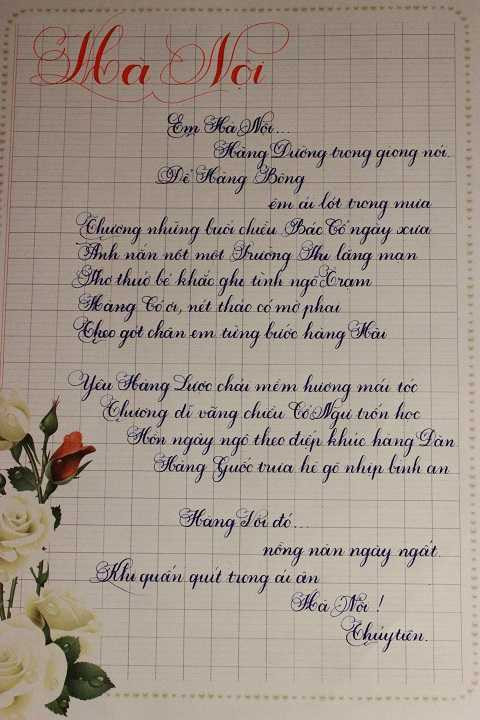 Hà Nội
Em Hà Nội...
Hàng Đường trong giọng nói.
Để Hàng Bông
êm ái lót trong mưa
Thương những buổi chiều Bác Cổ ngày xưa
Anh nắn nót một Trường Thi lãng mạn
Thơ thuở bé khắc ghi tình ngõ Trạm
Hàng Cỏ ơi, nét thảo có mờ phai
Theo gót chân em từng bước hàng Hài
Yêu Hàng Lược chải mềm hương mái tóc
Thương dĩ vãng chiều Cổ Ngư trốn học
Hồn ngây ngô theo điệp khúc hàng Đàn
Hàng Guốc trưa hè gõ nhịp bình an
Hàng Nồi đó...
nồng nàn ngây ngất.
Khi quấn quít trong ái ân
Hà Nội !
Thủy tiên.